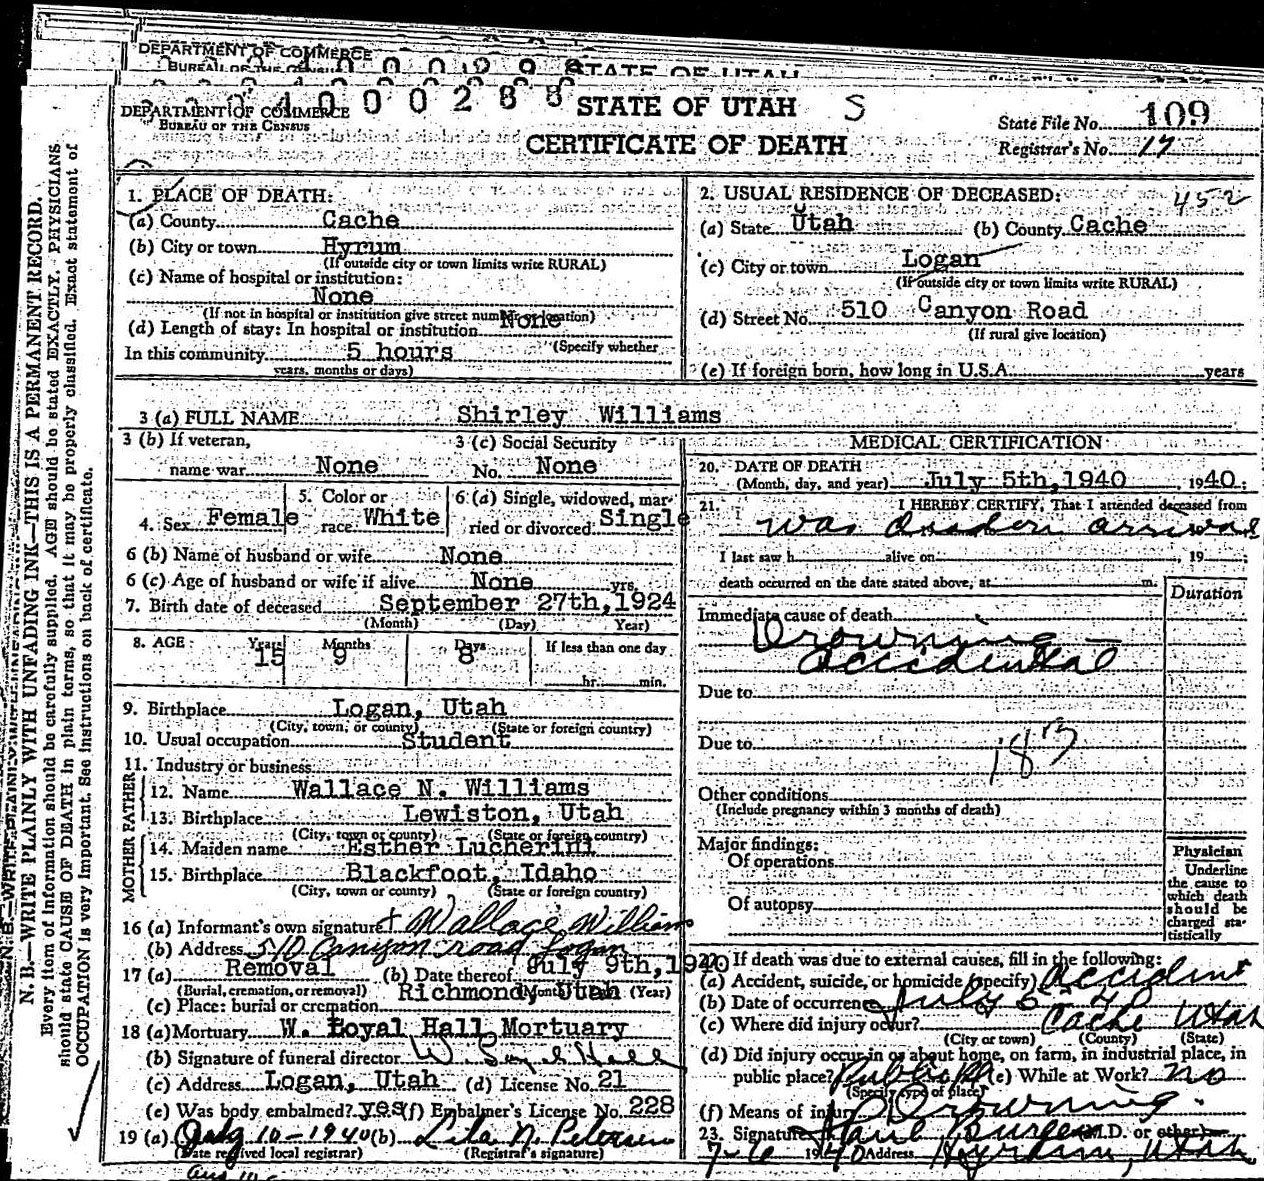 DEPARTMENT OF COMMERCE
BUREAU OF THE CENSUS
STATE OF UTAH
DEPARTMENT OF COMMERCE
BUREAU OF THE CENSUS
STATE OF UTAH S
CERTIFICATE OF DEATH
State File No. 109
Registrar's No. 17
1. PLACE OF DEATH:
(a) County Cache
(b) City or town Hyrum
(If outside city or town limits write RURAL)
(c) Name of hospital or institution:
None
(If not in hospital or institution give street number or location)
(d) Length of stay: In hospital or institution None
(Specify whether
In this community 5 hours
years, months or days)
2. USUAL RESIDENCE OF DECEASED: 452
(a) State Utah (b) County Cache
(c) City or town Logan
(If outside city or town limits write RURAL)
(d) Street No. 510 Canyon Road
(If rural give location)
(e) If foreign born, how long in U.S.A. years
3 (a) FULL NAME Shirley Williams
3 (b) If veteran,
name war None
3 (c) Social Security
No. None
4. Sex Female
5. Color or
race White
6 (a) Single, widowed, mar-
ried or divorced Single
6 (b) Name of husband or wife None
6 (c) Age of husband or wife if alive None yrs.
7. Birth date of deceased September 27th, 1924
(Month) (Day) Year)
8. AGE Years 15 Months 9 Days 8 If less than one day
hr. min.
9. Birthplace Logan, Utah
(City, town, or county) (State or foreign country)
10. Usual occupation Student
11. Industry or business
FATHER
12. Name Wallace N. Williams
13. Birthplace Lewiston, Utah
(City, town or county) (State or foreign country)
MOTHER
14. Maiden name Esther Lucherini
15. Birthplace Blackfoot, Idaho
(City, town or county) (State or foreign country)
16 (a) Informant's own signature Wallace Williams
(b) Address 510 Canyon road Logan
17 (a) Removal (b) Date thereof July 9th, 1940
(Burial, cremation, or removal) (Year)
(c) Place: burial or cremation Richmond, Utah
18 (a) Mortuary W. Loyal Hall Mortuary
(b) Signature of funeral director W. Loyal Hall
(c) Address Logan, Utah (d) License No. 21
(e) Was body embalmed? yes (f) Embalmer's License No. 228
19 (a) July 10-1940 (b) Lila N. Petersen
(Date received local registrar) (Registrar's signature)
MEDICAL CERTIFICATION
20. DATE OF DEATH
(Month, day, and year) July 5th, 1940, 1940:
21. I HEREBY CERTIFY, That I attended deceased from
was on arrival
I last saw h alive on , 19 ;
death occurred on the date stated above, at m.
Duration
Immediate cause of death
Drowning -
accidental
Due to
Due to
183
Other conditions
(Include pregnancy within 3 months of death)
Major findings:
Of operations
Of autopsy
Physician
Underline
the cause to
which death
should be
charged sta-
tistically
22. If death was due to external causes, fill in the following:
(a) Accident, suicide, or homicide (specify) accident
(b) Date of occurrence July 5 - 40
(c) Where did injury occur? Cache Utah
(City or town) (County) (State)
(d) Did injury occur in or about home, on farm, in industrial place, in
public place? Public (e) While at Work? no
(Specify type of place)
(f) Means of injury Drowning.
23. Signature Paul Burgess (M.D. or other)
7-6 1940 Address Hyrum, Utah
N. B.—WRITE PLAINLY WITH UNFADING INK—THIS IS A PERMANENT RECORD.
Every item of information should be carefully supplied. AGE should be stated EXACTLY. PHYSICIANS
should state CAUSE OF DEATH in plain terms, so that it may be properly classified. Exact statement of
OCCUPATION is very important. See instructions on back of certificate.